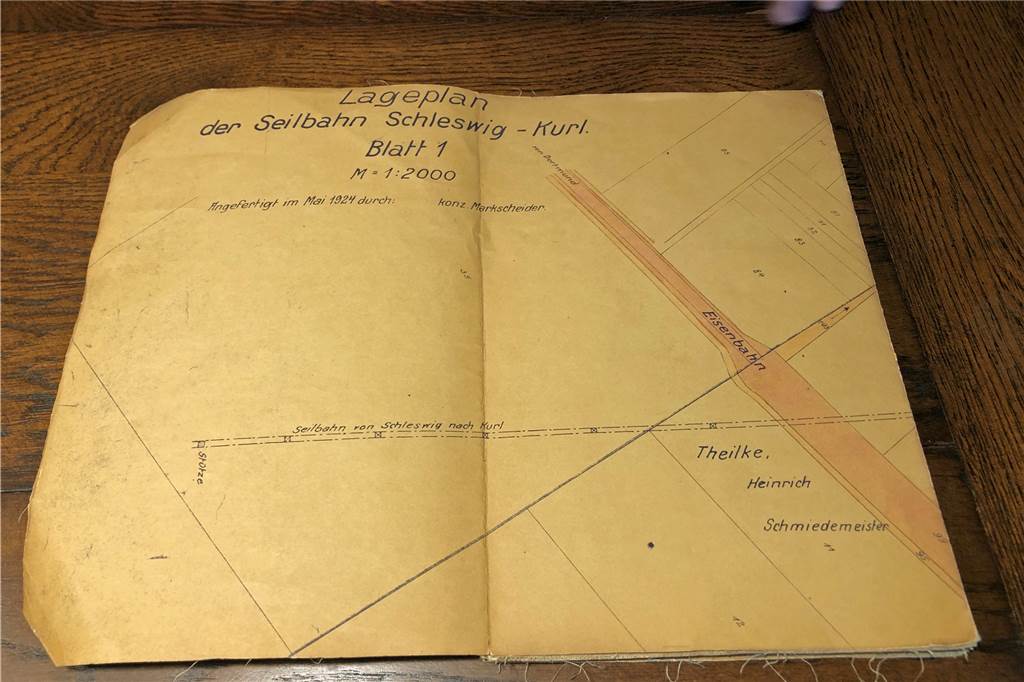 Lageplan
der Seilbahn Schleswig - Kurl.
Blatt 1
M = 1:2000
Angefertigt im Mai 1924 durch: konz. Markscheider.
von Dortmund
Eisenbahn
Seilbahn von Schleswig nach Kurl
Stütze
Theilke,
Heinrich
Schmiedemeister
11
12